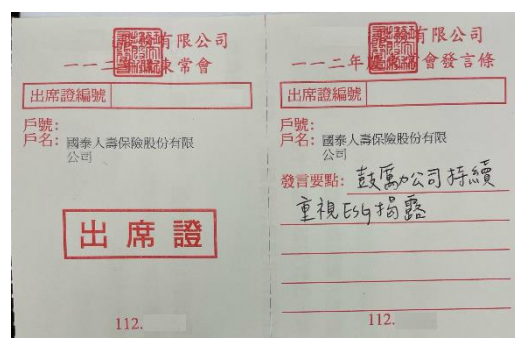 有限公司
一一二 東常會
出席證編號
戶號：
戶名：國泰人壽保險股份有限
公司
出席證
112.
有限公司
一一二年 會發言條
出席證編號
戶號：
戶名：國泰人壽保險股份有限
公司
發言要點：鼓勵公司持續
重視ESG揭露
112.